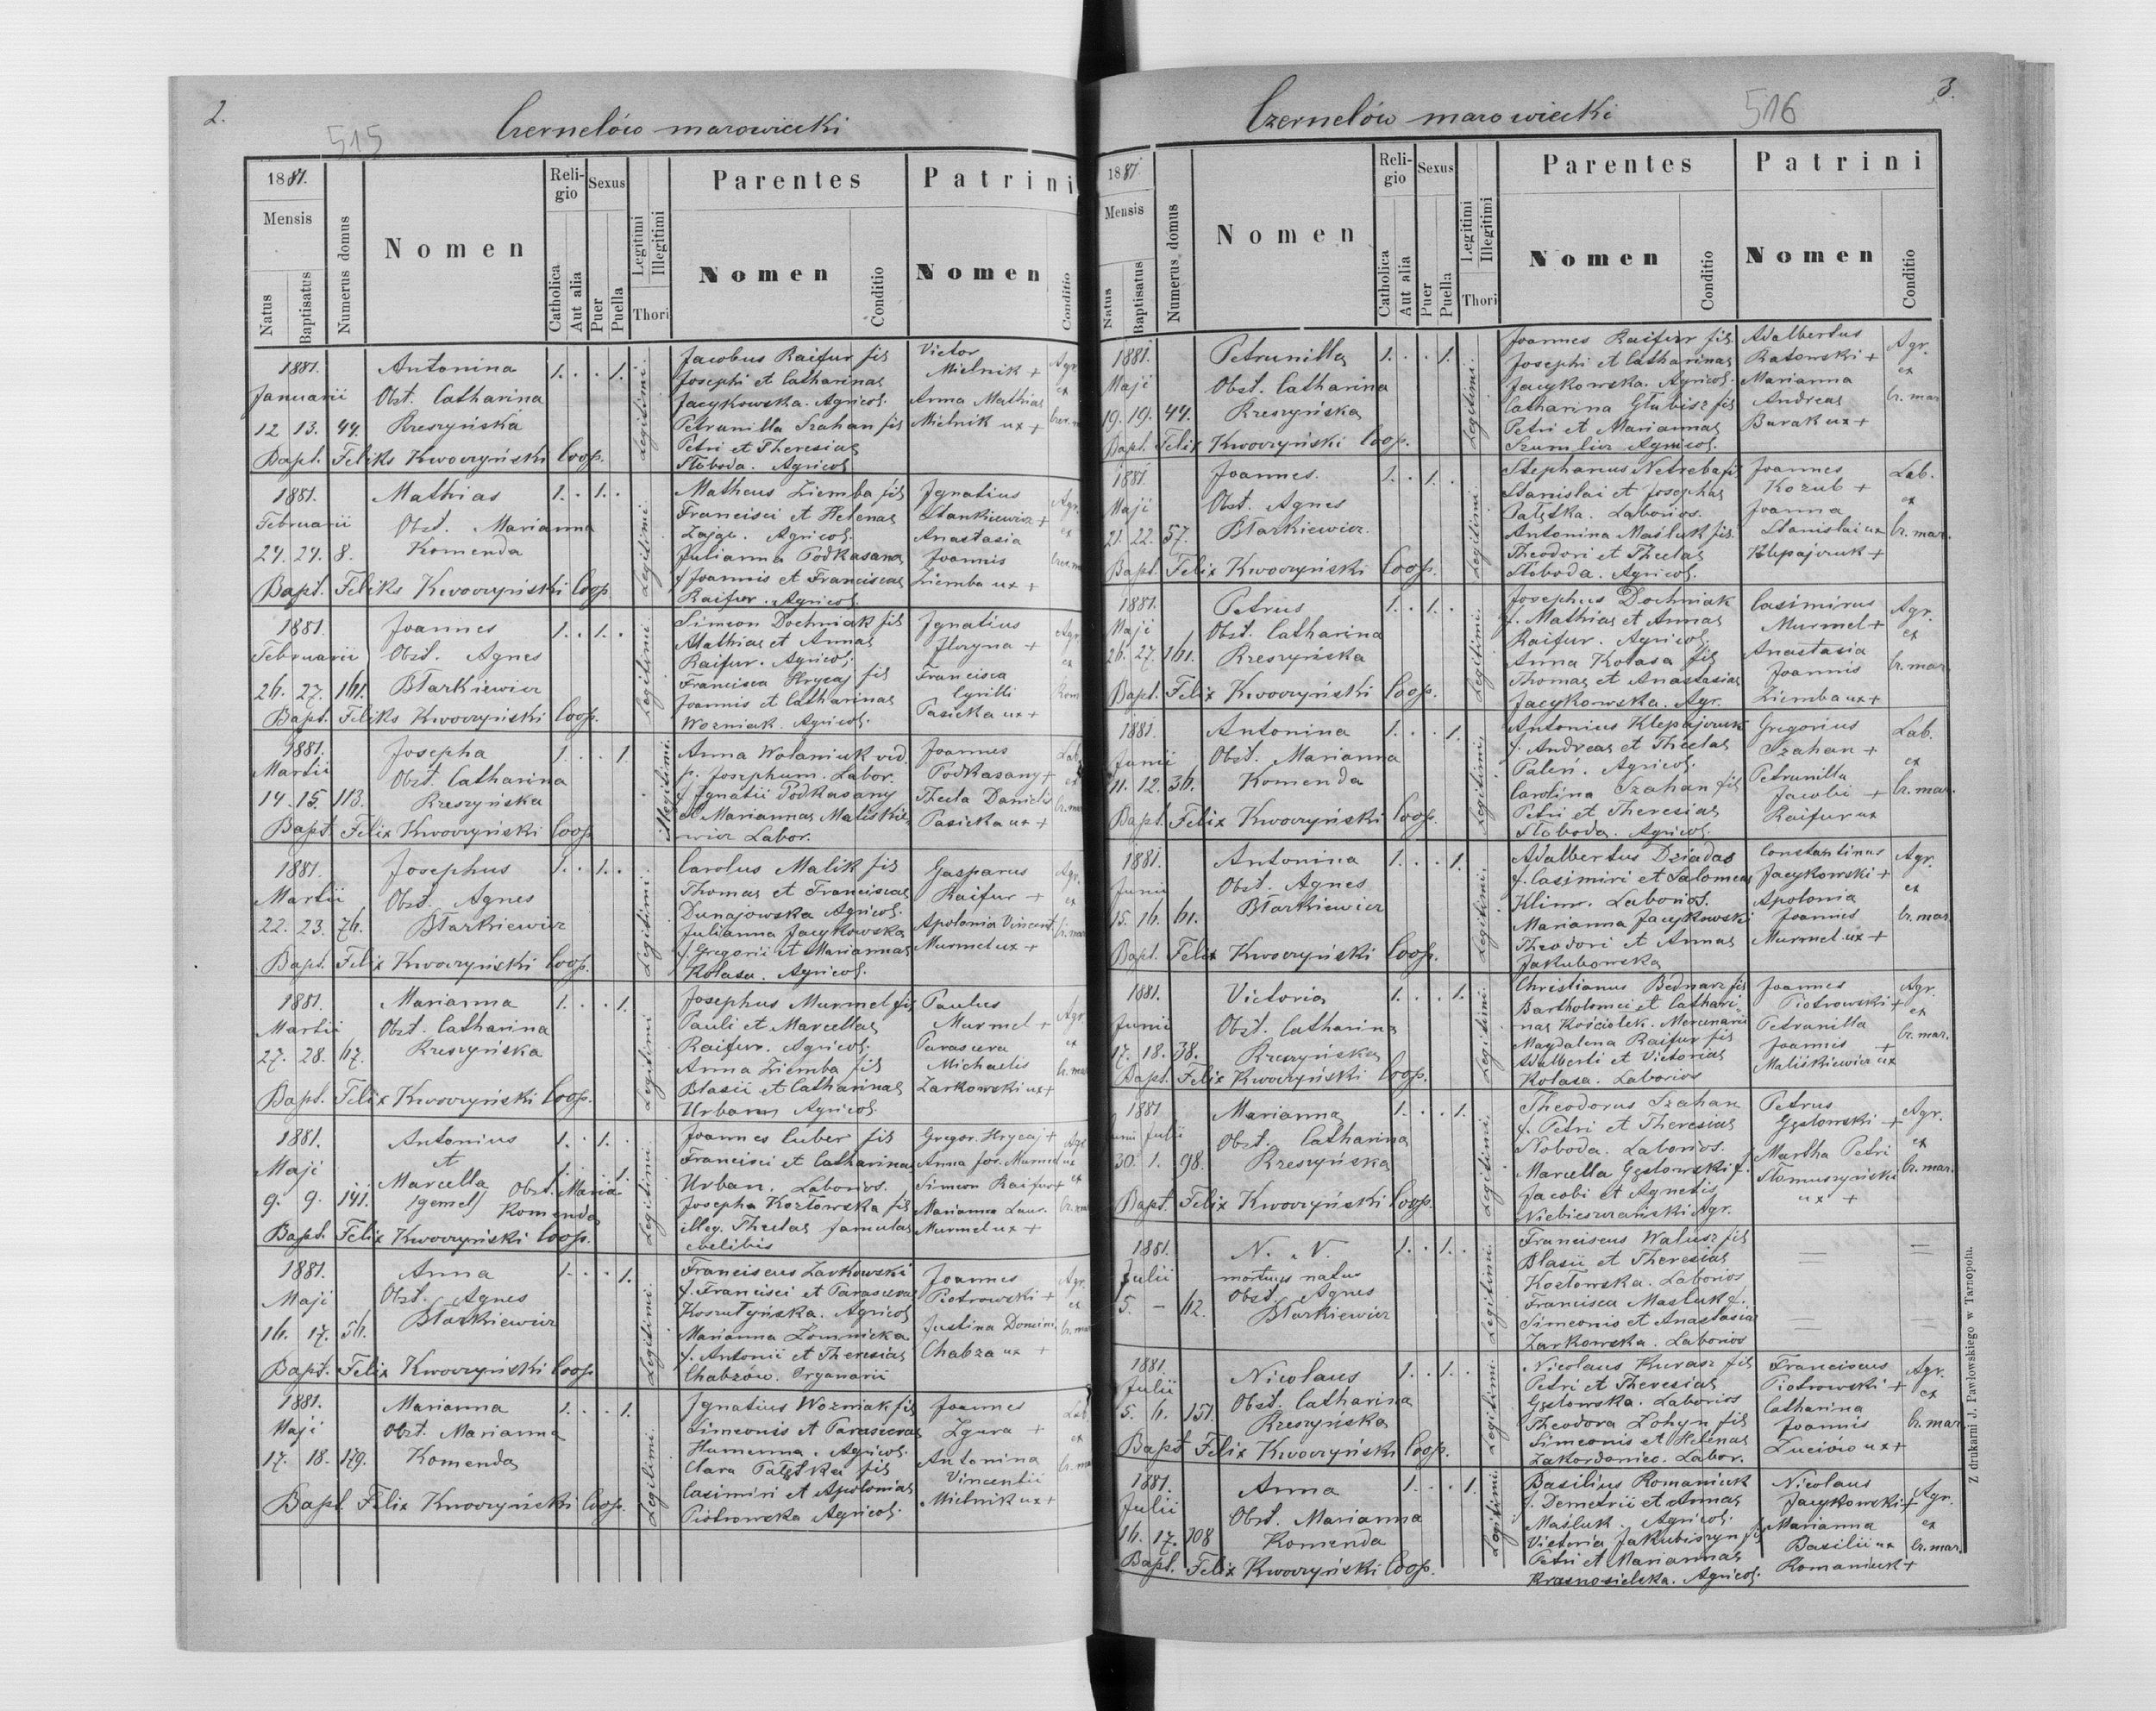 2.
515
Czernelów mazowiecki
1881.
Mensis
Natus
Baptisatus
Numerus domus
Nomen
Religio
Catholica
Aut alia
Sexus
Puer
Puella
Legitimi
Illegitimi
Thori
Parentes
Nomen
Conditio
Patrini
Nomen
Conditio
1881.
Januarii
12 13. 44.
Antonina
Obst. Catharina
Kreszyńska
1. . . 1.
Legitimi.
Jacobus Raifur fil
Josephi et Catharinae
Jacykowska. Agricol.
Petrunilla Szahan fil
Petri et Theresiae
Słoboda. Agricol.
Victor
Mielnik +
Anna Mathiae
Mielnik ux +
Agr.
ex
Bapt. Feliks Kwoczyński Coop.
1881.
Februarii
24. 24. 8.
Mathias
Obst. Marianna
Komenda
1. . 1. .
Legitimi.
Matheus Ziemba fil
Francisci et Helenae
Zając. Agricol.
Julianna Podkasana
f. Joannis et Franciscae
Raifur. Agricol.
Ignatius
Stankiewicz +
Anastasia
Joannis
Ziemba ux +
Agr.
ex
Bapt. Feliks Kwoczyński Coop.
1881.
Februarii
26. 27. 161.
Joannes
Obst. Agnes
Błarkiewicz
1. . 1. .
Legitimi.
Simeon Dochniak fil
Mathiae et Annae
Raifur. Agricol.
Francisca Hrycaj fil
Joannis et Catharinae
Wozniak. Agricol.
Ignatius
Horyna +
Francisca
Cyrilli
Pasieka ux +
Agr.
ex
Bapt. Feliks Kwoczyński Coop.
1881.
Martii
14. 15. 113.
Josepha
Obst. Catharina
Kreszyńska
1. . . 1.
Illegitimi.
Anna Wolaniuk vid.
p. Josephum. Labor.
f. Ignatii Podkasany
et Mariannae Maliskie-
wicz Labor.
Joannes
Podkasany +
Thecla Danielis
Pasieka ux +
Lab.
ex
br. mar.
Bapt. Felix Kwoczyński Coop.
1881.
Martii
22. 23. 76.
Josephus
Obst. Agnes
Błarkiewicz
1. . 1. .
Legitimi.
Carolus Malik fil
Thomae et Franciscae
Dunajowska Agricol.
Julianna Jacykowska
f. Gregorii et Mariannae
Kolasa. Agricol.
Gasparus
Raifur +
Apolonia Vincent
Murmel ux +
Agr.
ex
br. mar
Bapt. Felix Kwoczyński Coop.
1881.
Martii
27. 28. 67.
Marianna
Obst. Catharina
Kreszyńska
1. . . 1.
Legitimi
Josephus Murmel fil
Pauli et Marcellae
Raifur. Agricol.
Anna Ziemba fil
Blasii et Catharinae
Urban Agricol.
Paulus
Murmel +
Parasceva
Michaelis
Zarkowski ux +
Agr.
ex
br. mar
Bapt. Felix Kwoczyński Coop.
1881.
Maji
9. 9. 141.
Antonius
et
Marcella
(gemel)
Obst. Maria
Komenda
1. . 1. .
1. . . 1.
Legitimi.
Joannes Cuber fil
Francisci et Catharinae
Urban. Laborios.
Josepha Kozłowska fil
illeg. Theclae famulae
coelibis
Gregor. Hrycaj +
Anna Jos. Murmel ux
Simeon Raifur +
Marianna Laur.
Murmel ux +
Agr.
ex
br. mar
Bapt. Felix Kwoczyński Coop.
1881.
Maji
16. 17. 56.
Anna
Obst. Agnes
Błarkiewicz
1. . . 1.
Legitimi.
Franciscus Zarkowski
f. Francisci et Parascevae
Koszutyńska. Agricol
Marianna Łomnicka
f. Antonii et Theresiae
Chabzów. Organarii
Joannes
Piotrowski +
Justina Domini.
Chabza ux +
Agr.
ex
br. mar
Bapt. Felix Kwoczyński Coop
1881.
Maji
17. 18. 179.
Marianna
Obst. Marianna
Komenda
1. . . 1.
Legitimi.
Ignatius Woźniak fil
Simeonis et Parascevae
Humenna. Agricol.
Clara Pałęska fil
Casimiri et Apoloniae
Piotrowska Agricol.
Joannes
Zgura +
Antonina
Vincentii
Mielnik ux +
Lab
ex
br. mar
Bapt. Felix Kwoczyński Coop.
3.
516
Czernelów mazowiecki
1881.
Mensis
Natus
Baptisatus
Numerus domus
Nomen
Religio
Catholica
Aut alia
Sexus
Puer
Puella
Legitimi
Illegitimi
Thori
Parentes
Nomen
Conditio
Patrini
Nomen
Conditio
1881.
Maji
19. 19. 44.
Petrunilla
Obst. Catharina
Kreszyńska
1. . . 1.
Legitimi.
Joannes Raifur fil
Josephi et Catharinae
Jacykowska. Agricol.
Catharina Głubisz fil
Petri et Mariannae
Szumlicz Agricol.
Adalbertus
Ratowski +
Marianna
Andreae
Burak ux +
Agr.
ex
br. mar
Bapt. Felix Kwoczyński Coop.
1881.
Maji
21. 22. 57.
Joannes.
Obst. Agnes
Błarkiewicz.
1. . 1. .
Legitimi.
Stephanus Netreba fil
Stanislai et Josephae
Pałęska. Laborios.
Antonina Maśluk fil.
Theodori et Theclae
Słoboda. Agricol.
Joannes
Kozub +
Joanna
Stanislai ux
Klepajczuk +
Lab.
ex
br. mar.
Bapt. Felix Kwoczyński Coop.
1881.
Maji
26. 27. 161.
Petrus
Obst. Catharina
Kreszyńska
1. . 1. .
Legitimi.
Josephus Dochniak
f. Mathiae et Annae
Raifur. Agricol.
Anna Kolasa fil
Thomae et Anastasiae
Jacykowska. Agr.
Casimirus
Murmel +
Anastasia
Joannis
Ziemba ux +
Agr.
ex
br. mar.
Bapt. Felix Kwoczyński Coop.
1881.
Junii
11. 12. 36.
Antonina
Obst. Marianna
Komenda
1. . . 1.
Legitimi.
Antonius Klepajczuk
f. Andreae et Theclae
Paleń. Agricol.
Carolina Szahan fil
Petri et Theresiae
Słoboda. Agricol.
Gregorius
Szahan +
Petrunilla
Jacobi +
Raifur ux
Lab.
ex
br. mar.
Bapt. Felix Kwoczyński Coop.
1881.
Junii
15. 16. 61.
Antonina
Obst. Agnes
Błarkiewicz
1. . . 1.
Legitimi.
Adalbertus Dziadas
f. Casimiri et Salomeae
Klim. Laborios.
Marianna Jacykowski
Theodori et Annae
Jakubowska
Constantinus
Jacykowski +
Apolonia
Joannes
Murmel ux +
Agr.
ex
br. mar.
Bapt. Felix Kwoczyński Coop.
1881.
Junii
17. 18. 38.
Victoria
Obst. Catharina
Kreszyńska
1. . . 1.
Legitimi.
Christianus Bednarz fil
Bartholomei et Cathari-
nae Kościolek. Mercenarii
Magdalena Raifur fil
Adalberti et Victoriae
Kolasa. Laborios
Joannes
Piotrowski +
Petrunilla
Joannis +
Maliskiewicz ux
Agr.
ex
br. mar.
Bapt. Felix Kwoczyński Coop.
1881
Juni Julii
30. 1. 98.
Marianna
Obst. Catharina
Kreszyńska
1. . . 1.
Legitimi.
Theodorus Szahan
f. Petri et Theresiae
Słoboda. Laborios.
Marcella Gęstowski f.
Jacobi et Agnetis
Niebieszczański Agr.
Petrus
Gęstowski +
Martha Petri
Stomuszyński
ux +
Agr.
ex
br. mar.
Bapt. Felix Kwoczyński Coop.
1881.
Julii
5. – 62.
N. N.
mortuus natus
Obst. Agnes
Błarkiewicz
1. . 1. .
Legitimi.
Franciscus Walusz fil
Blasii et Theresiae
Kozłowska. Laborios
Francisca Masluk f.
Simeonis et Anastasiae
Zarkowska. Laborios
1881.
Julii
5. 6. 151.
Nicolaus
Obst. Catharina
Kreszyńska
1. . 1. .
Legitimi.
Nicolaus Kurasz fil
Petri et Theresiae
Gęstowska. Laborios
Theodora Zohyn fil
Simeonis et Helenae
Zakordoniec. Labor.
Franciscus
Piotrowski +
Catharina
Joannis
Zuciów ux +
Agr.
ex
br. mar
Bapt. Felix Kwoczyński Coop.
1881.
Julii
16. 17. 108
Anna
Obst. Marianna
Komenda
1. . . 1.
Legitimi.
Basilius Romaniuk
f. Demetrii et Annae
Maśluk. Agricol.
Victoria Jakubiszyn fil
Petri et Mariannae
Krasnosielska. Agricol.
Nicolaus
Jacykowski +
Marianna
Basilii ux
Romaniuk +
Agr.
ex
br. mar.
Bapt. Felix Kwoczyński Coop.
Z drukarni J. Pawłowskiego w Tarnopolu.